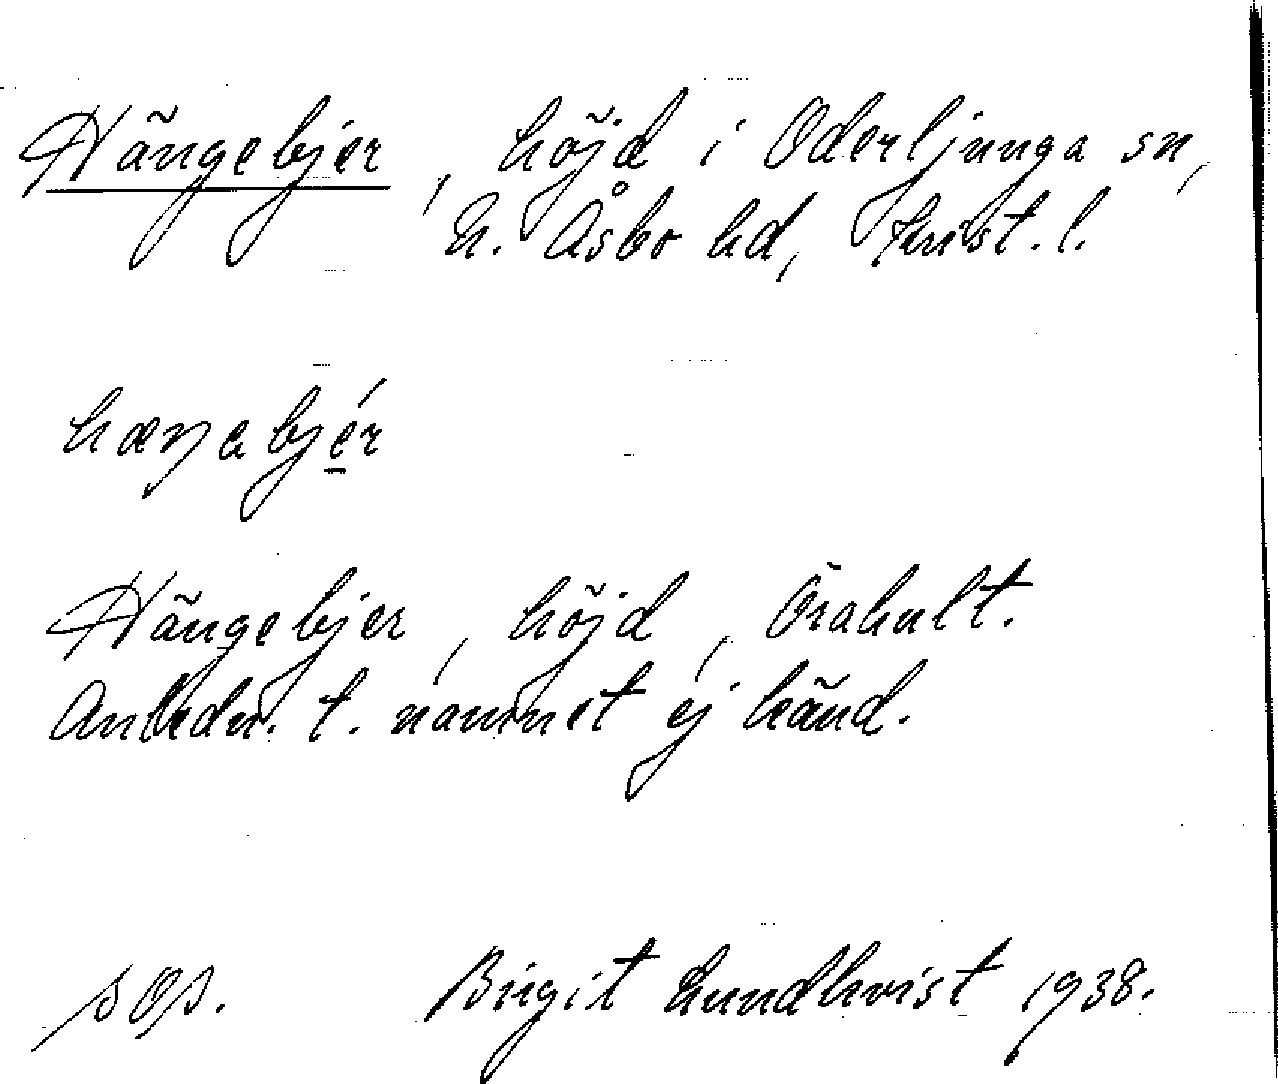 Hängebjer, höjd i Oderljunga sn,
N. Åsbo hd, Krist. l.
hæŋabjér
Hängebjer, höjd, Örahult.
Anledn. t. namnet ej känd.
sOs. Birgit Lundkvist 1938.